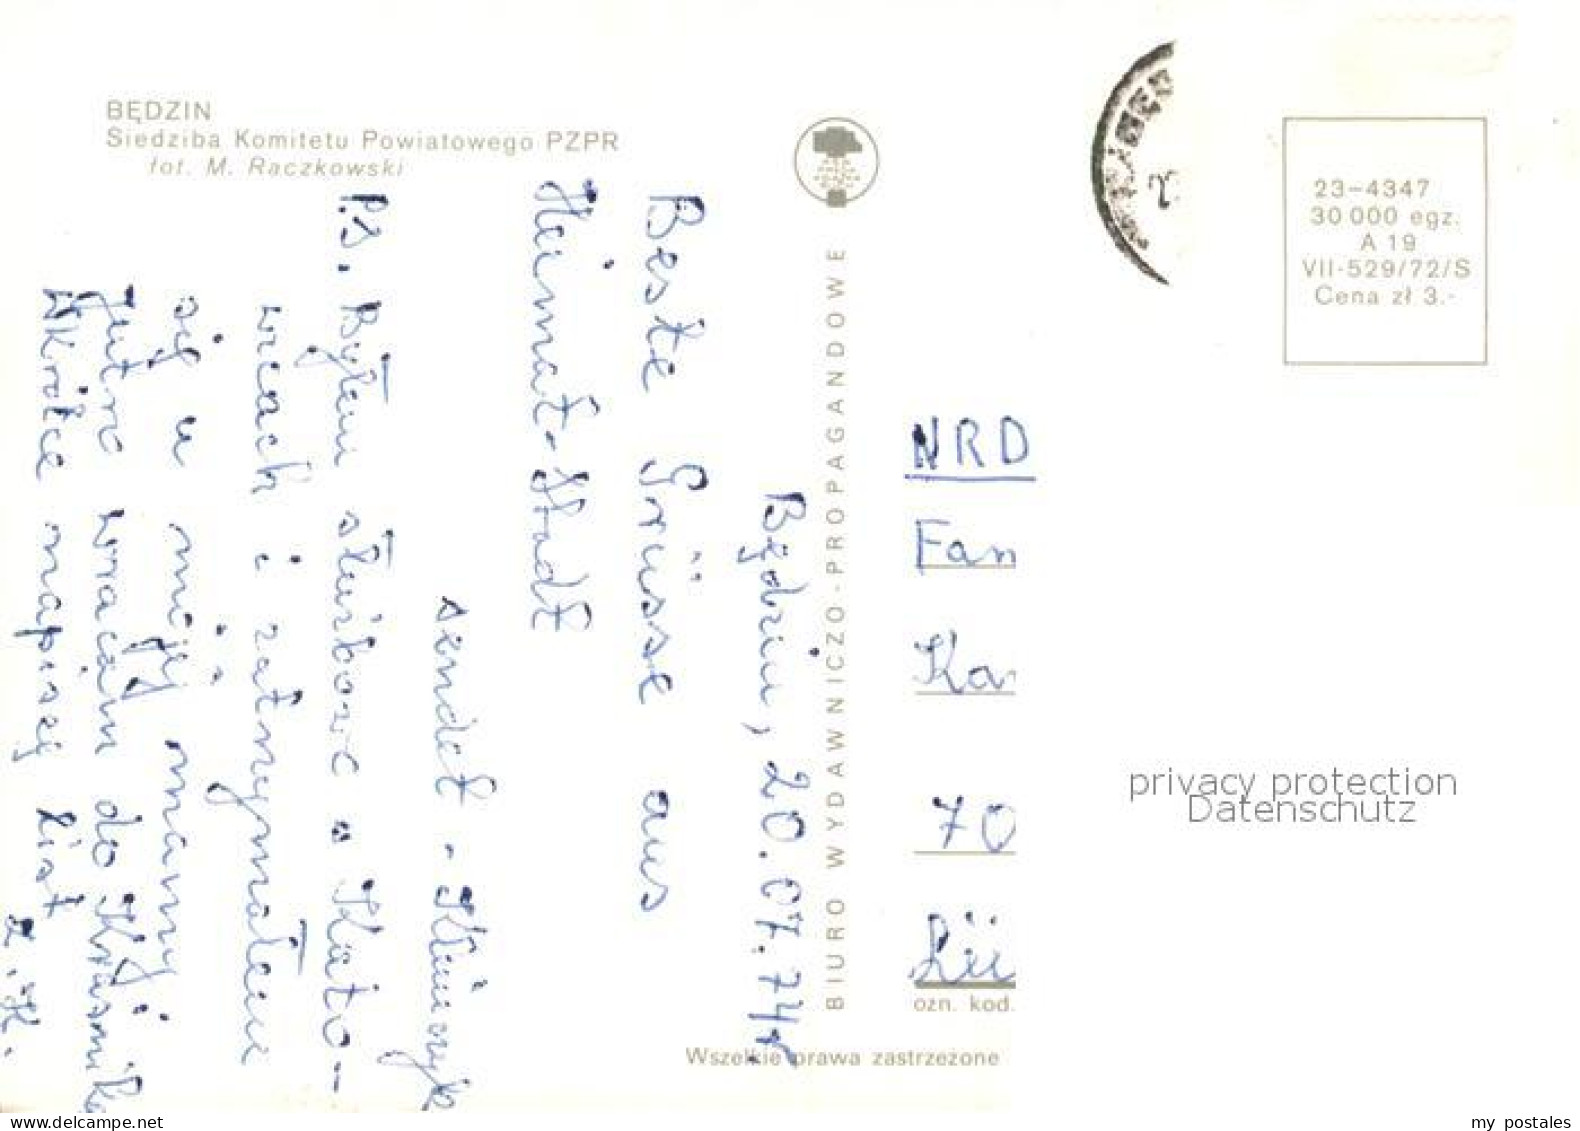 BĘDZIN
Siedziba Komitetu Powiatowego PZPR
fot. M. Raczkowski
Będzin, 20.07.74r
Beste Grüsse aus
Heimat-Stadt
sendet - Klimczyk
P.S. Byłem służbowo w Kato-
wicach i zatrzymałem
się u mojej mamy
Jutro wracam do Kraśnika
Wkrótce napiszę list
Z.K.
BIURO WYDAWNICZO-PROPAGANDOWE
Wszelkie prawa zastrzeżone
23-4347
30 000 egz.
A 19
VII-529/72/S
Cena zł 3.-
NRD
Fam
Ka
70
ozn. kod.
privacy protection
Datenschutz
www.delcampe.net
my postales